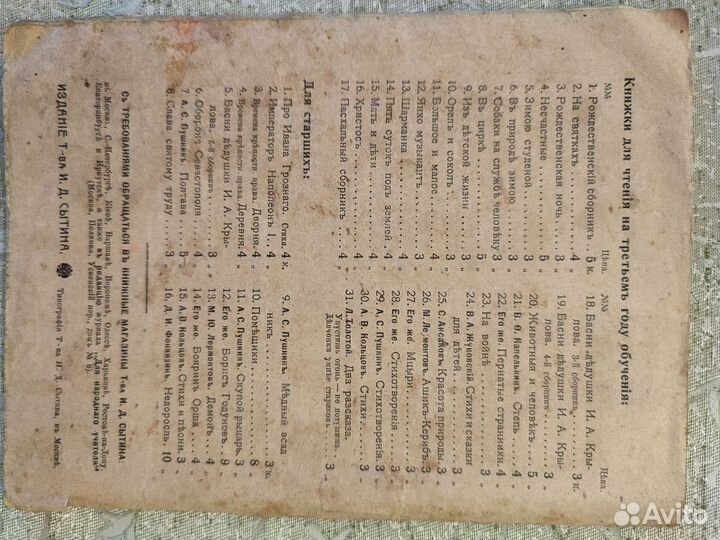 Книжки для чтенія на третьемъ году обученія:
№№ Цѣна.
1. Рождественскій сборникъ 5 к.
2. На святкахъ 4 „
3. Рождественская ночь 3 „
4. Несчастные 4 „
5. Зимою студеной 5 „
6. Въ природѣ зимою 3 „
7. Собаки на службѣ человѣку 3 „
8. Въ циркѣ 3 „
9. Изъ дѣтской жизни 3 „
10. Орелъ и соколъ 3 „
11. Большое и малое 4 „
12. Янко музыкантъ 3 „
13. Шарманка 4 „
14. Пять сутокъ подъ землей 4 „
15. Мать и дѣти 4 „
16. Христосъ 4 „
17. Пасхальный сборникъ 4 „
№№ Цѣна.
18. Басни дѣдушки И. А. Кры-
лова. 3-й сборникъ 3 к.
19. Басни дѣдушки И. А. Кры-
лова. 4-й сборникъ 3 „
20. Животныя и человѣкъ 5 „
21. В. Ѳ. Напельникъ. Степь 4 „
22. Его же. Пернатые странники. 4 „
23. На войнѣ 3 „
24. В. А. Жуковскій. Стихи и сказки
для дѣтей. 4 „
25. С. Аксаковъ. Красота природы 3 „
26. М. Лермонтовъ. Ашикъ-Керибъ. 3 „
27. Его же. Мцыри 3 „
28. Его же. Стихотворенія 3 „
29. А. С. Пушкинъ. Стихотворенія. 3 „
30. А. В. Кольцовъ. Стихи 3 „
31. Л. Толстой. Два разсказа.
Упустишь огонь—не потушишь.
Дѣвчонки умнѣе стариковъ 3 „
Для старшихъ:
1. Про Ивана Грознаго. Стихи. 4 к.
2. Императоръ Наполеонъ I 4 „
3. Времена крѣпостн. права. Дворня. 4 „
4. Времена крѣпостн. права. Деревня. 4 „
5. Басни дѣдушки И. А. Кры-
лова, 5-й сборникъ 3 „
6. Оборона Севастополя 4 „
7. А. С. Пушкинъ. Полтава 5 „
8. Слава святому труду 3 „
9. А. С. Пушкинъ. Мѣдный всад
никъ 3 к.
10. Помѣщики 8 „
11. А. С. Пушкинъ. Скупой рыцарь. 3 „
12. Его же. Борисъ Годуновъ. 9 „
13. М. Ю. Лермонтовъ. Демонъ. 4 „
14. Его же. Бояринъ Орша 4 „
15. А. В. Кольцовъ. Стихи и пѣсни. 3 „
16. Д. И. Фонвизинъ. Недоросль. 10 „
СЪ ТРЕБОВАНІЯМИ ОБРАЩАТЬСЯ ВЪ КНИЖНЫЕ МАГАЗИНЫ Т-ва И. Д. СЫТИНА.
въ Москвѣ, С.-Петербургѣ, Кіевѣ, Варшавѣ, Воронежѣ, Одессѣ, Харьковѣ, Ростовѣ-на-Дону,
Екатеринбургѣ и Иркутскѣ, а также въ редакцію журнала „Для народнаго учителя“
(Москва, Полянка, Успенскій пер., домъ № 8).
ИЗДАНІЕ Т-ВА И. Д. СЫТИНА. Типографія Т-ва И. Д. Сытина, въ Москвѣ.
Avito